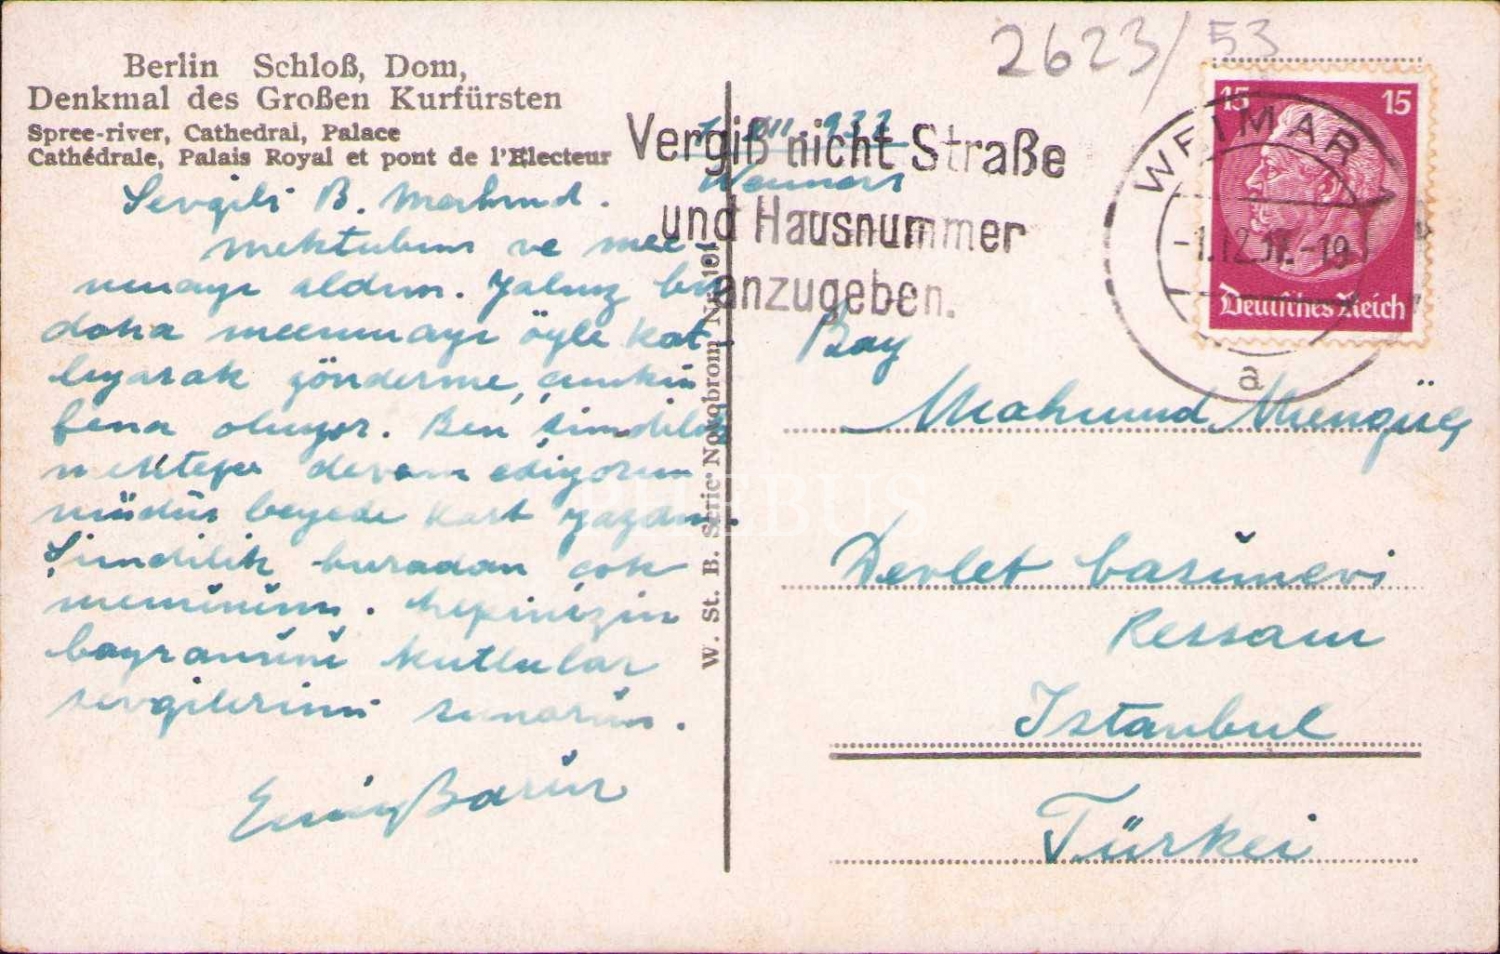 2623/53
Berlin Schloß, Dom,
Denkmal des Großen Kurfürsten
Spree-river, Cathedral, Palace
Cathédrale, Palais Royal et pont de l'Electeur
Vergiß nicht Straße
und Hausnummer
anzugeben.
WEIMAR
-1.12.37.-19
a
15 15
Deutsches Reich
Sevgili B. Mahmud.
mektubunu ve mec-
muayı aldım. Yalnız bir
daha mecmuayı öyle kat-
layarak gönderme, çünkü
fena oluyor. Ben şimdilik
mektepe devam ediyorum
müdür beyede kart yazdım.
Şimdilik buradan çok
memnunum. hepinizin
bayramını kutlular
sevgilerimi sunarım.
Emin Barın
W. St. B. Serie Novobrom Nr. 101
Bay
Mahmud
Devlet basımevi
Ressam
Istanbul
Türkei
PHEBUS